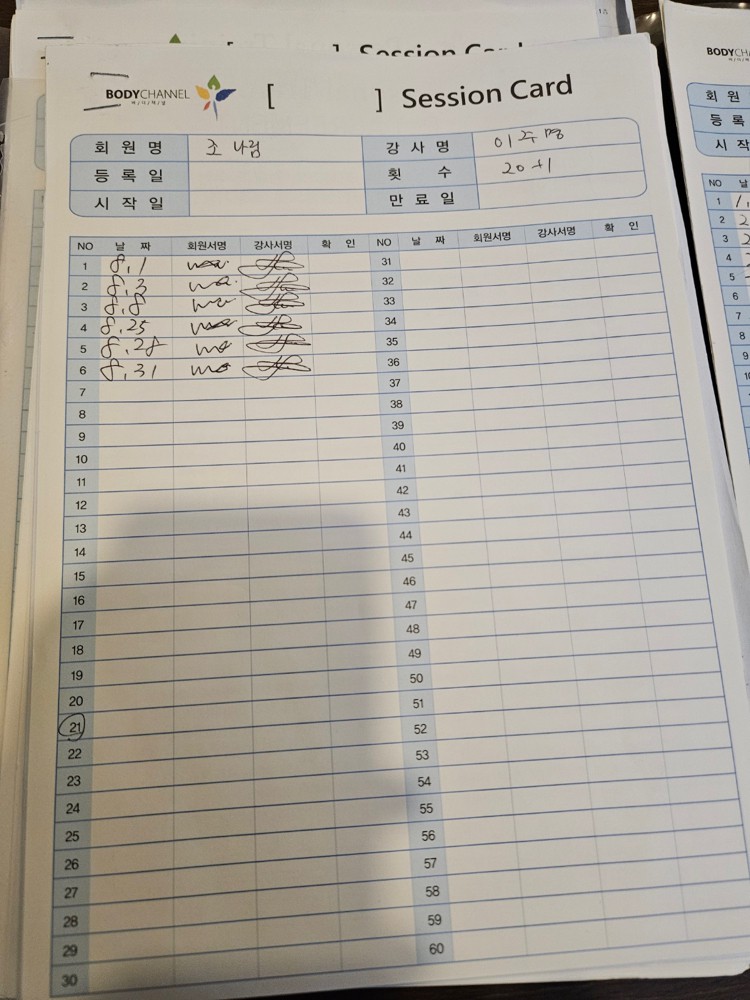 Session Card
BODYCHANNEL
바/디/채/널
[ ] Session Card
회원명 조나림 강사명 이주명
등록일 횟수 20+1
시작일 만료일
NO 날짜 회원서명 강사서명 확인 NO 날짜 회원서명 강사서명 확인
1 8.1 31
2 8.3 32
3 8.8 33
4 8.25 34
5 8.28 35
6 8.31 36
7 37
8 38
9 39
10 40
11 41
12 42
13 43
14 44
15 45
16 46
17 47
18 48
19 49
20 50
21 51
22 52
23 53
24 54
25 55
26 56
27 57
28 58
29 59
30 60
BODYCH
회원
등록
시작
NO 날
1 1.
2 2
3 2
4 2
5
6
7
8
9
10